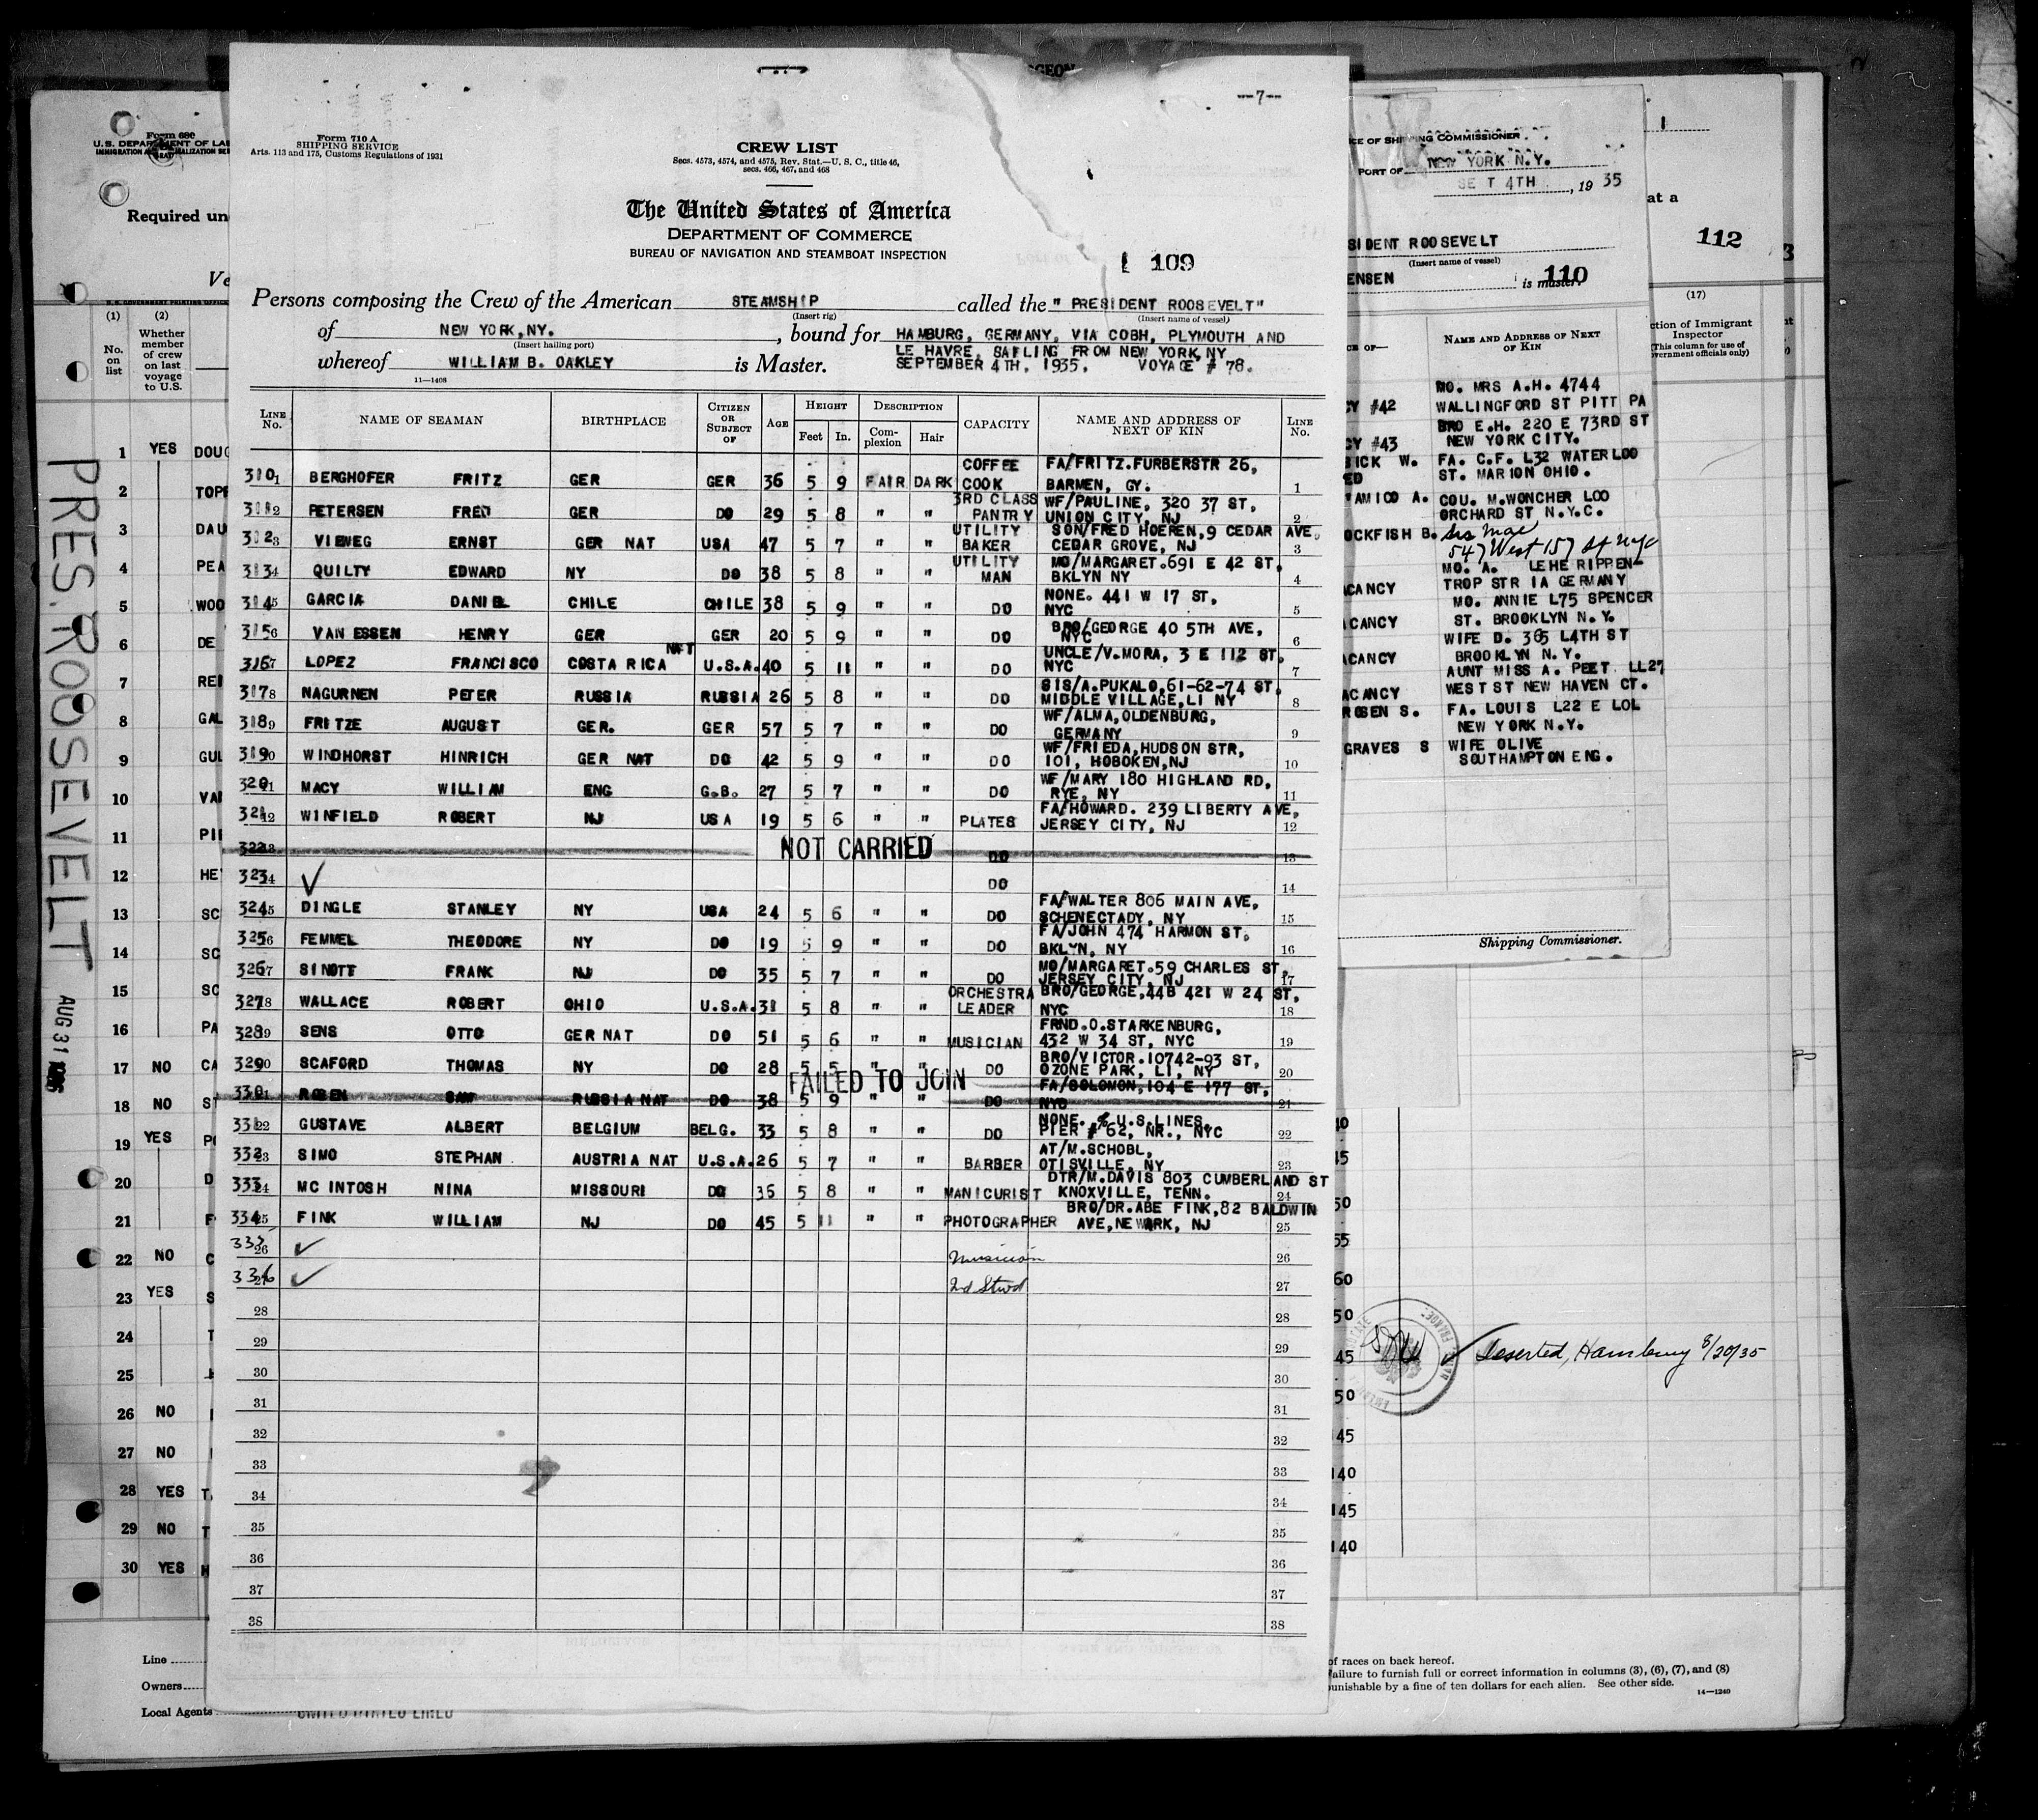 --7--
Form 710 A
SHIPPING SERVICE
Arts. 113 and 175, Customs Regulations of 1931
CREW LIST
Secs. 4573, 4574, and 4575, Rev. Stat.—U. S. C., title 46,
secs. 466, 467, and 468
The United States of America
DEPARTMENT OF COMMERCE
BUREAU OF NAVIGATION AND STEAMBOAT INSPECTION
109
Persons composing the Crew of the American STEAMSHIP called the " PRESIDENT ROOSEVELT"
(Insert rig) (Insert name of vessel)
of NEW YORK, NY. , bound for HAMBURG, GERMANY, VIA COBH, PLYMOUTH AND
(Insert hailing port) LE HAVRE, SAILING FROM NEW YORK, NY
whereof WILLIAM B. OAKLEY is Master. SEPTEMBER 4TH, 1935. VOYAGE # 78.
11—1408
LINE No. NAME OF SEAMAN BIRTHPLACE CITIZEN OR SUBJECT OF AGE HEIGHT Feet In. DESCRIPTION Complexion Hair CAPACITY NAME AND ADDRESS OF NEXT OF KIN LINE No.
310 1 BERGHOFER FRITZ GER GER 36 5 9 FAIR DARK COFFEE COOK FA/FRITZ.FURBERSTR 26, BARMEN, GY. 1
311 2 PETERSEN FRED GER DO 29 5 8 " " 3RD CLASS PANTRY WF/PAULINE, 320 37 ST, UNION CITY, NJ 2
312 3 VIEWEG ERNST GER NAT USA 47 5 7 " " UTILITY BAKER SON/FRED HOEREN, 9 CEDAR AVE, CEDAR GROVE, NJ 3
313 4 QUILTY EDWARD NY DO 38 5 8 " " UTILITY MAN MO/MARGARET.691 E 42 ST, BKLYN NY 4
314 5 GARCIA DANIEL CHILE CHILE 38 5 9 " " DO NONE. 441 W 17 ST, NYC 5
315 6 VAN ESSEN HENRY GER GER 20 5 9 " " DO BRO/GEORGE 40 5TH AVE, NYC 6
316 7 LOPEZ FRANCISCO COSTA RICA NAT U.S.A. 40 5 11 " " DO UNCLE/V.MORA, 3 E 112 ST, NYC 7
317 8 NAGURNEN PETER RUSSIA RUSSIA 26 5 8 " " DO SIS/A.PUKALO, 61-62-74 ST, MIDDLE VILLAGE, LI NY 8
318 9 FRITZE AUGUST GER. GER 57 5 7 " " DO WF/ALMA, OLDENBURG, GERMANY 9
319 10 WINDHORST HINRICH GER NAT DO 42 5 9 " " DO WF/FRIEDA, HUDSON STR, 101, HOBOKEN, NJ 10
320 11 MACY WILLIAM ENG G.B. 27 5 7 " " DO WF/MARY 180 HIGHLAND RD, RYE, NY 11
321 12 WINFIELD ROBERT NJ USA 19 5 6 " " PLATES FA/HOWARD. 239 LIBERTY AVE, JERSEY CITY, NJ 12
322 13 NOT CARRIED DO 13
323 14 ✓ DO 14
324 15 DINGLE STANLEY NY USA 24 5 6 " " DO FA/WALTER 806 MAIN AVE, SCHENECTADY, NY 15
325 16 FEMMEL THEODORE NY DO 19 5 9 " " DO FA/JOHN 474 HARMON ST, BKLYN, NY 16
326 17 SINOTT FRANK NJ DO 35 5 7 " " DO MO/MARGARET.59 CHARLES ST, JERSEY CITY, NJ 17
327 18 WALLACE ROBERT OHIO U.S.A. 31 5 8 " " ORCHESTRA LEADER BRO/GEORGE, 44B 421 W 24 ST, NYC 18
328 19 SENS OTTO GER NAT DO 51 5 6 " " MUSICIAN FRND.O.STARKENBURG, 432 W 34 ST, NYC 19
329 20 SCAFORD THOMAS NY DO 28 5 5 " " DO BRO/VICTOR.10742-93 ST, OZONE PARK, LI, NY 20
330 21 ROSEN SAM RUSSIA NAT DO 38 5 9 " " FAILED TO JOIN DO FA/SOLOMON, 104 E 177 ST, NYC 21
331 22 GUSTAVE ALBERT BELGIUM BELG. 33 5 8 " " DO NONE. % U.S.LINES, PIER # 62, NR., NYC 22
332 23 SIMO STEPHAN AUSTRIA NAT U.S.A. 26 5 7 " " BARBER AT/M.SCHOBL, OTISVILLE, NY 23
333 24 MC INTOSH NINA MISSOURI DO 36 5 8 " " MANICURIST DTR/M.DAVIS 803 CUMBERLAND ST KNOXVILLE, TENN. 24
334 25 FINK WILLIAM NJ DO 45 5 11 " " PHOTOGRAPHER BRO/DR.ABE FINK, 82 BALDWIN AVE, NEWARK, NJ 25
335 26 ✓ Musician 26
336 27 ✓ 2d Stwd 27
28 28
29 29
30 30
31 31
32 32
33 33
34 34
35 35
36 36
37 37
38 38
Form 680
U.S. DEPARTMENT OF LA
Required un
Ve
(1) (2)
No. on list
Whether member of crew on last voyage to U.S.
1 YES DOUG
2 TOPP
3 DAU
4 PEA
5 WOO
6 DE
7 REI
8 GAL
9 GUL
10 VAN
11 PI
12 HE
13 SC
14 SC
15 SC
16 PA
17 NO CA
18 NO ST
19 YES
20 D
21 F
22 NO C
23 YES S
24 T
25
26 NO
27 NO
28 YES T
29 NO T
30 YES H
PRES. ROOSEVELT
AUG 31
Line
Owners
Local Agents
UNITED STATES LINES
CE OF SHIPPING COMMISSIONER
PORT OF NEW YORK N.Y.
SE T 4TH , 19 35
SIDENT ROOSEVELT
(Insert name of vessel)
ENSEN is master.
110
NAME AND ADDRESS OF NEXT OF KIN
MO. MRS A.H. 4744
CY #42 WALLINGFORD ST PITT PA
BRO E.H. 220 E 73RD ST
CY #43 NEW YORK CITY.
W. FA. C.F. L32 WATERLOO
ED ST. MARION OHIO.
AMICO A. COU. M.WONCHER LOO
ORCHARD ST N.Y.C.
OCKFISH B. Sis Mae
547 West 157 St NYC
MO. A. LEHE RIPPEN-
CANCY TROP STR IA GERMANY
MO. ANNIE L75 SPENCER
CANCY ST. BROOKLYN N.Y.
WIFE D. 365 L4TH ST
CANCY BROOKLYN N.Y.
AUNT MISS A. PEET LL27
ACANCY WEST ST NEW HAVEN CT.
ROSEN S. FA. LOUIS L22 E LOL
NEW YORK N.Y.
GRAVES S WIFE OLIVE
SOUTHAMPTON ENG.
Shipping Commissioner.
at a
112
(17)
ction of Immigrant Inspector
(This column for use of
vernment officials only)
40
45
50
55
60
50
45 ✓ Deserted, Hamburg 8/20/35
50
145
140
145
140
of races on back hereof.
ailure to furnish full or correct information in columns (3), (6), (7), and (8)
unishable by a fine of ten dollars for each alien. See other side.
14—1240